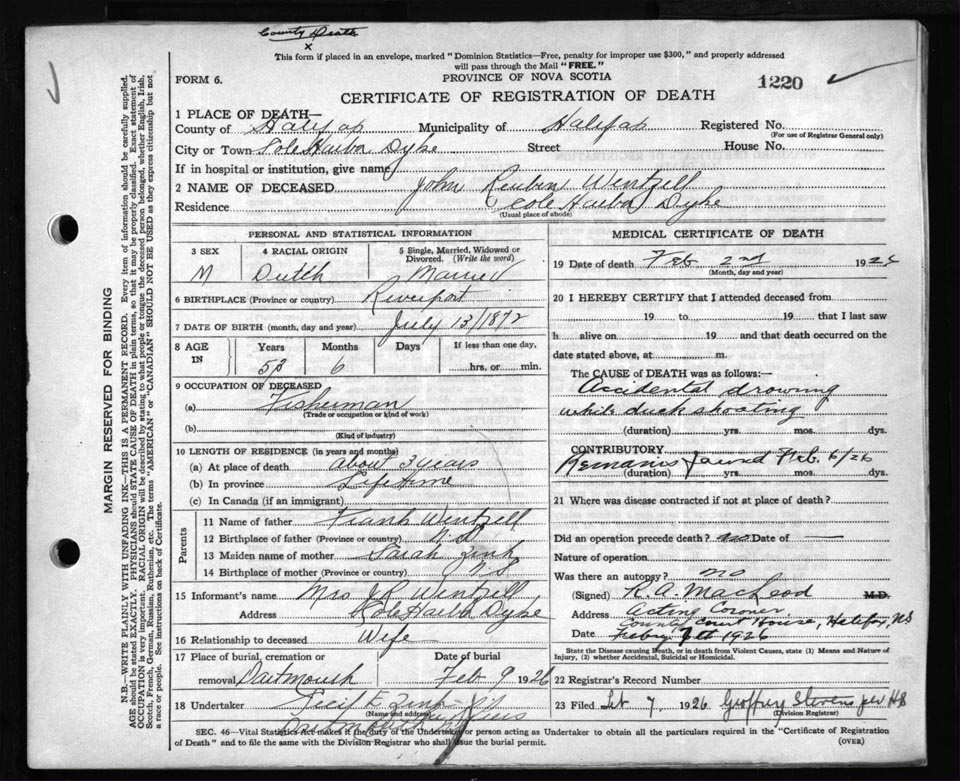 County Death
x
This form if placed in an envelope, marked "Dominion Statistics—Free, penalty for improper use $300," and properly addressed
will pass through the Mail "FREE."
FORM 6.
PROVINCE OF NOVA SCOTIA
1220
CERTIFICATE OF REGISTRATION OF DEATH
1 PLACE OF DEATH—
County of Halifax Municipality of Halifax Registered No.
(For use of Registrar General only)
City or Town Cole Harbor Dyke Street House No.
If in hospital or institution, give name
2 NAME OF DECEASED John Reubin Wentzell
Residence Cole Harbor Dyke
(Usual place of abode)
PERSONAL AND STATISTICAL INFORMATION
3 SEX 4 RACIAL ORIGIN 5 Single, Married, Widowed or Divorced. (Write the word)
M Dutch Married
6 BIRTHPLACE (Province or country) Riverport
7 DATE OF BIRTH (month, day and year) July 13/1872
8 AGE IN Years Months Days If less than one day,
53 6 hrs. or min.
9 OCCUPATION OF DECEASED
(a) Fisherman
(Trade or occupation or kind of work)
(b)
(Kind of industry)
10 LENGTH OF RESIDENCE (in years and months)
(a) At place of death about 3 years
(b) In province Life time
(c) In Canada (if an immigrant)
Parents
11 Name of father Frank Wentzell
12 Birthplace of father (Province or country) N.S.
13 Maiden name of mother Sarah Zink
14 Birthplace of mother (Province or country) N.S
15 Informant's name Mrs J R Wentzell
Address Cole Harbor Dyke
16 Relationship to deceased Wife
17 Place of burial, cremation or Date of burial
removal Dartmouth Feb 9 1926
18 Undertaker Cecil E. Zink
(Name and address)
Dartmouth
MEDICAL CERTIFICATE OF DEATH
19 Date of death Feb 2nd 1926
(Month, day and year)
20 I HEREBY CERTIFY that I attended deceased from
19 to 19 that I last saw
h alive on 19 and that death occurred on the
date stated above, at m.
The CAUSE of DEATH was as follows:—
Accidental drowning
while duck shooting
(duration) yrs. mos. dys.
CONTRIBUTORY
Remains found Feb. 6/26
(duration) yrs. mos. dys.
21 Where was disease contracted if not at place of death?
Did an operation precede death? no Date of —
Nature of operation
Was there an autopsy? no
(Signed) R. A. MacLeod M.D.
Address Acting Coroner
County Court House, Halifax, NS
Date Febry 7th 1926
State the Disease causing Death, or in death from Violent Causes, state (1) Means and Nature of
Injury, (2) whether Accidental, Suicidal or Homicidal.
22 Registrar's Record Number
23 Filed 7, 1926 Geoffrey Stevens per HS
(Division Registrar)
SEC. 46—Vital Statistics Act makes it the duty of the Undertaker or person acting as Undertaker to obtain all the particulars required in the "Certificate of Registration
of Death" and to file the same with the Division Registrar who shall issue the burial permit.
(OVER)
MARGIN RESERVED FOR BINDING
N.B.—WRITE PLAINLY WITH UNFADING INK—THIS IS A PERMANENT RECORD. Every item of information should be carefully supplied.
AGE should be stated EXACTLY. PHYSICIANS should STATE CAUSE OF DEATH in plain terms, so that it may be properly classified. Exact statement of
OCCUPATION is very important. RACIAL ORIGIN will be described by stating to what people or tongue the deceased person belonged, whether English, Irish,
Scotch, French, German, Russian, Ruthenian, etc. The terms "AMERICAN" or "CANADIAN" SHOULD NOT BE USED as they express citizenship but not
a race or people. See instructions on back of Certificate.